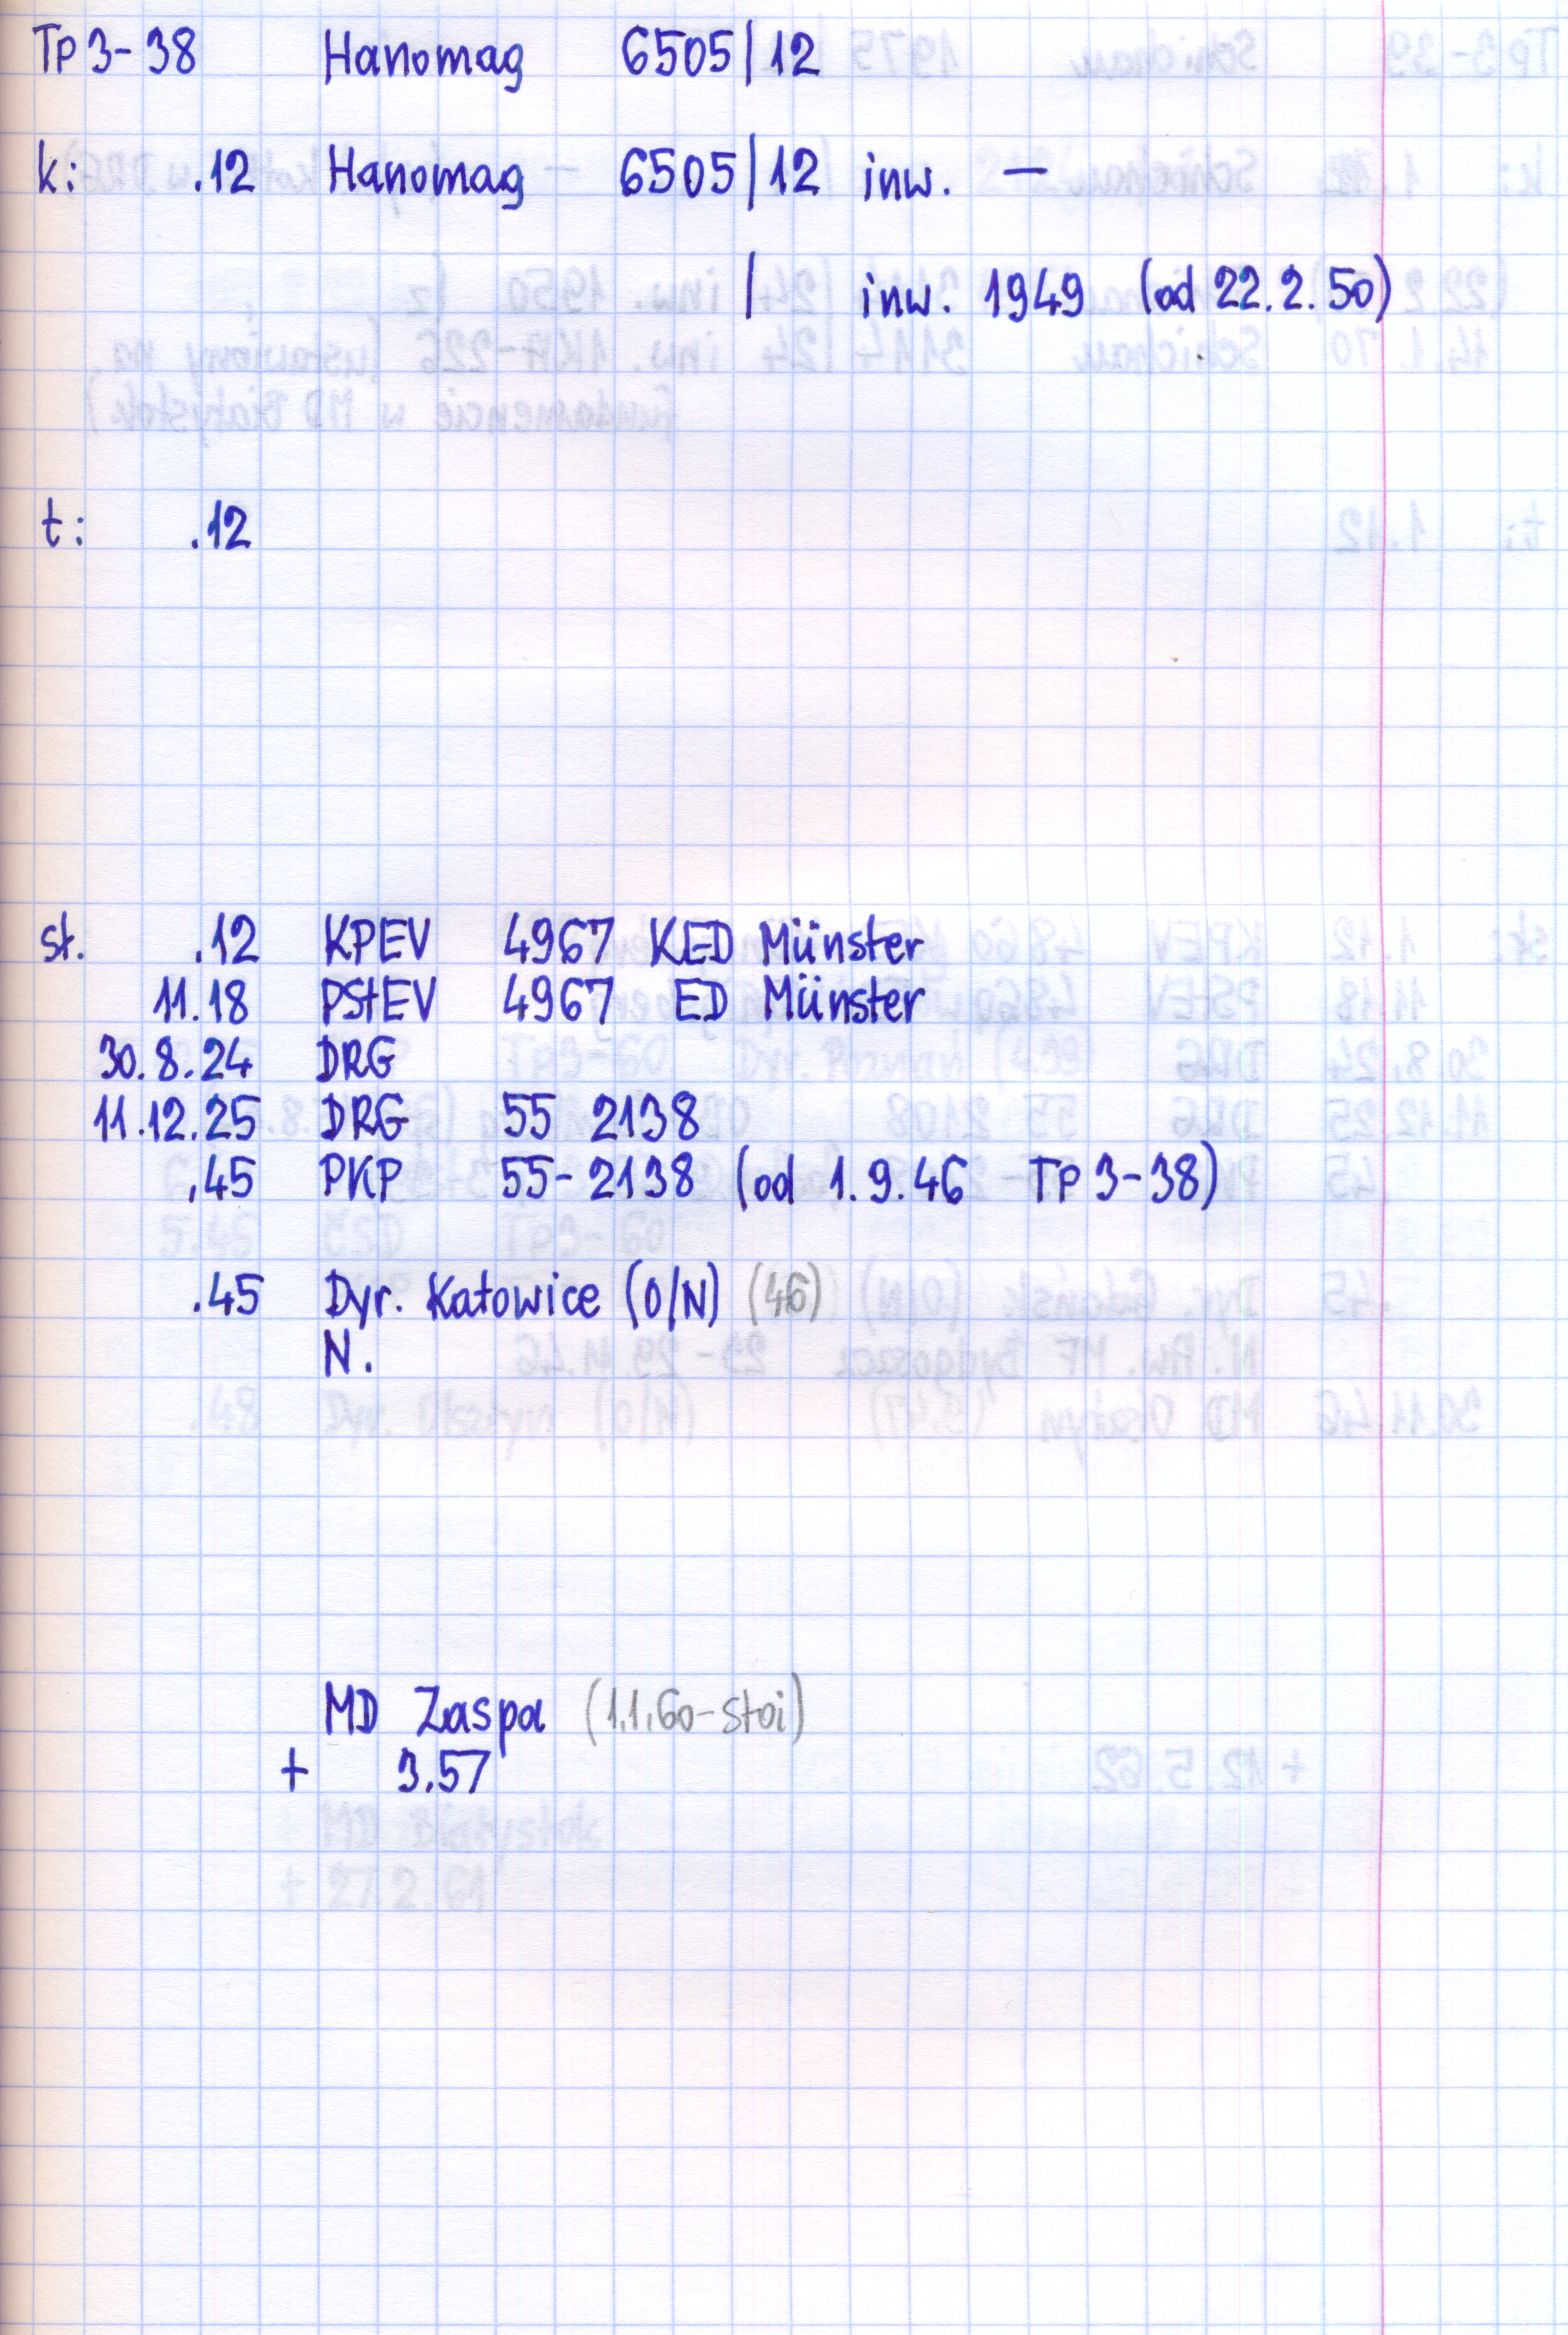 Tp3-38 Hanomag 6505/12
k: .12 Hanomag 6505/12 inw. —
/ inw. 1949 (od 22.2.50)
t: .12
st. .12 KPEV 4967 KED Münster
11.18 PStEV 4967 ED Münster
30.8.24 DRG
11.12.25 DRG 55 2138
.45 PKP 55-2138 (od 1.9.46 Tp3-38)
.45 Dyr. Katowice (O/N) (46)
N.
MD Zaspa (1.1.60-stoi)
+ 3.57